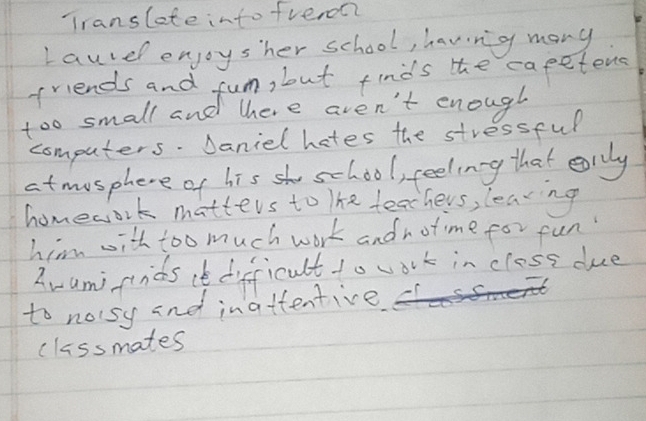 Translate into french
Laurel enjoys her school, having many
friends and fun, but finds the cafeteria
too small and there aren't enough
computers. Daniel hates the stressful
atmosphere of his school, feeling that only
homework matters to the teachers, leaving
him with too much work and no time for fun.
finds it difficult to work in class due
to noisy and inattentive
classmates